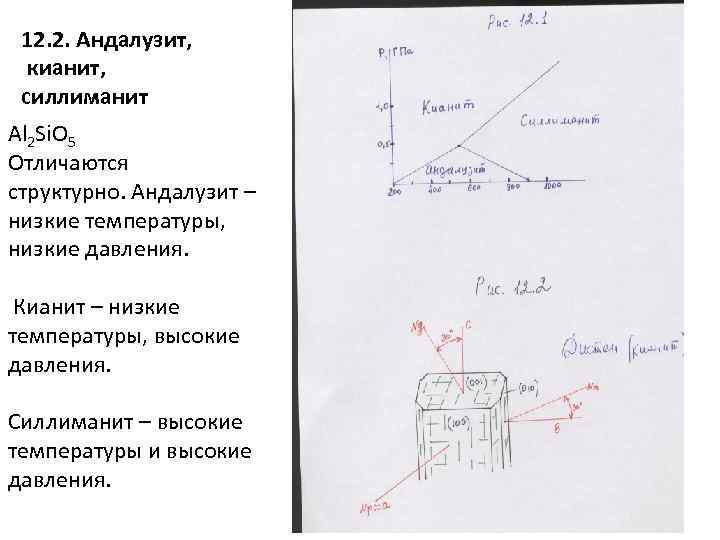 12.2. Андалузит,
кианит,
силлиманит
Al2SiO5
Отличаются
структурно. Андалузит –
низкие температуры,
низкие давления.
Кианит – низкие
температуры, высокие
давления.
Силлиманит – высокие
температуры и высокие
давления.
Рис. 12.1
Р, ГПа
1,0
Кианит
Силлиманит
0,5
андалузит
200 400 600 800 1000
Рис. 12.2
Ng
30°
C
Дистен (кианит)
(001)
(010)
(100)
Nm
30°
B
Np=a